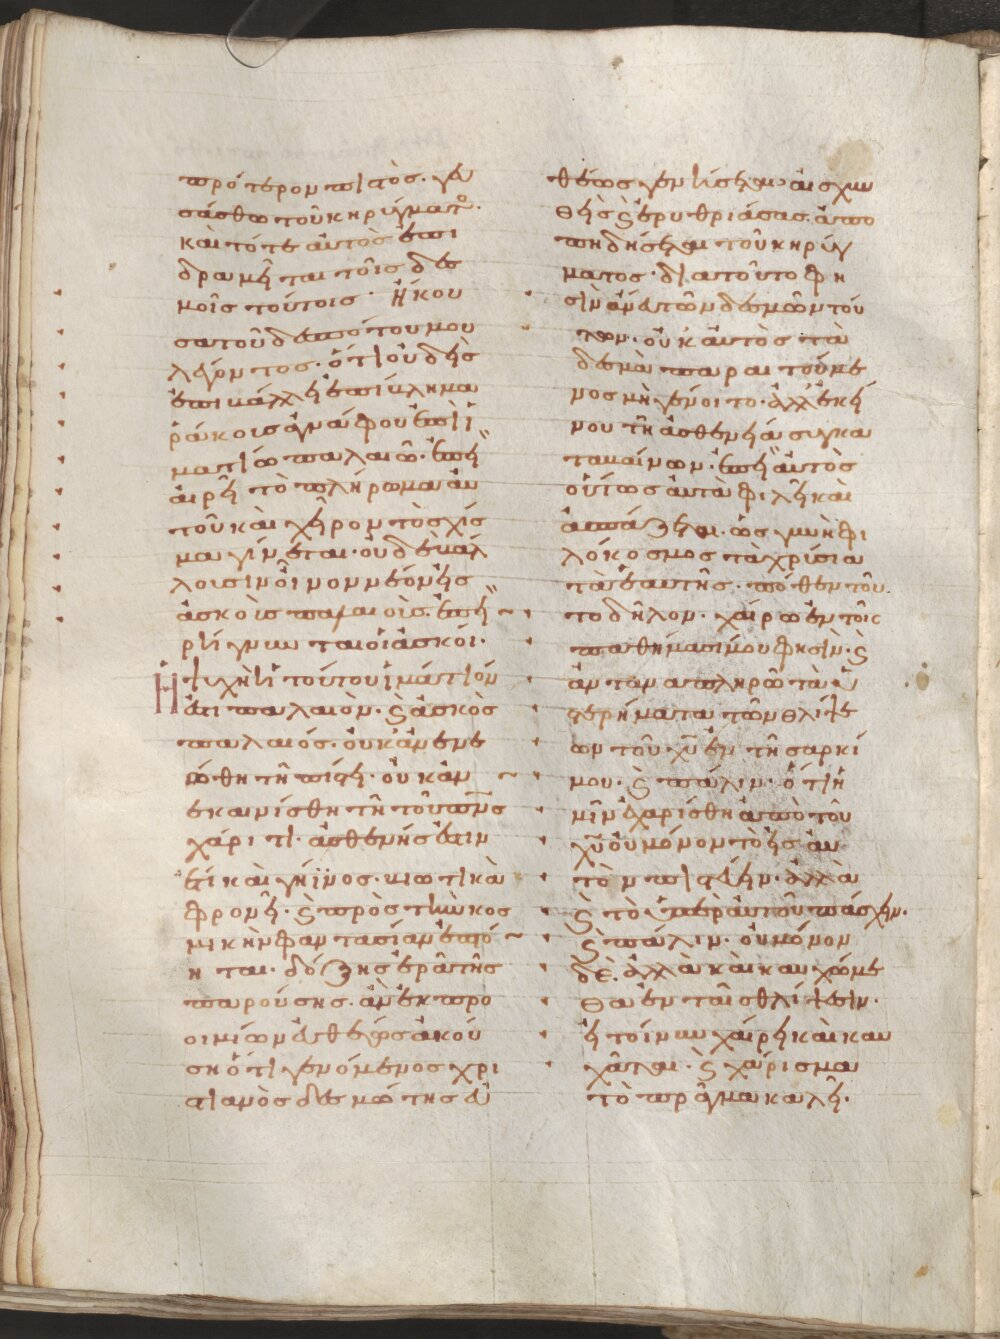 πρότερον πιστὸς. γευ
σάσθω τοῦ κηρύγματος.
καὶ τότε αὐτὸς ἐπι
δραμεῖται τοῖς δε
μοῖς τούτοις. Ἤκου
σα τοῦ δεσπότου μου
λέγοντος. ὅτι οὐδεὶς
ἐπιβάλλει ἐπίβλημα
ῥάκους ἀγνάφου ἐπὶ ἱ
ματίω παλαιῶ. ἐπεὶ
αἱρεῖ τὸ πλήρωμα αὐ
τοῦ καὶ χεῖρον τὸ σχίσ
μα γίνεται. οὐδὲ βάλ
λουσιν οἶνον νέον εἰς
ἀσκοὺς παλαιούς. ἐπεὶ
ῥίγνυνται οἱ ἀσκοί.
Ἡ ψυχὴ ἡ τούτου ἱμάτιόν
ἐστι παλαιὸν. ϗ ἀσκὸς
παλαιός. οὐκ ἀνενε
ώθη τῆ πίστει. οὐκ ἀν
εκαινίσθη τῆ τοῦ πνς
χάριτι. ἀσθενής ἐστιν
ἔτι καὶ γήϊνος. βιωτικὰ
φρονεῖ. ϗ πρὸς τὴν κοσ
μικὴν φαντασίαν ἐπτό
ηται. δόξης ἐρᾶ τῆς
παρούσης. ἂν ἐκ προ
οιμίων εὐθέως ἀκού
ση ὅτι γενόμενος χρι
στιανὸς δεσμώτης εὐ
θέως γενήσεται αἰσχυν
θεὶς ϗ ἐρυθριάσας. ἀπο
πηδήσεται τοῦ κηρύγ
ματος. διατοῦτο φη
σὶν ἄνευ τῶν δεσμῶν τού
των. οὐκ αὐτὸς τὰ
δεσμὰ παραιτούμε
νος μὴ γένοιτο. ἀλλ' ἐκεί
νου τῆ ἀσθενεία συγκα
ταβαίνων. ἐπεὶ αὐτὸς
οὕτως αὐτὰ φιλεῖ καὶ
ἀσπάζεται. ὡς γυνὴ φι
λόκοσμος τὰ χρύσια
τὰ ἑαυτῆς. πόθεν τοῦ
το δῆλον. χαίρω ἐν τοῖς
παθήμασί μου φησὶν. ϗ
ἀνταναπληρῶ τὰ ὑ
στερήματα τῶν θλίψε
ων τοῦ χῦ ἐν τῆ σαρκί
μου. ϗ πάλιν. ὅτι ἡ
μῖν ἐχαρίσθη ἀπὸ τοῦ
χῦ οὐ μόνον τὸ εἰς αὐ
τὸν πιστεύειν. ἀλλὰ
ϗ τὸ ὑπὲρ αὐτοῦ πάσχειν.
ϗ πάλιν. οὐ μόνον
δὲ. ἀλλὰ καὶ καυχώμε
θα ἐν ταῖς θλίψεσιν.
εἰ τοίνυν χαίρει καὶ καυ
χᾶται. ϗ χάρισμα
τὸ πρᾶγμα καλεῖ.